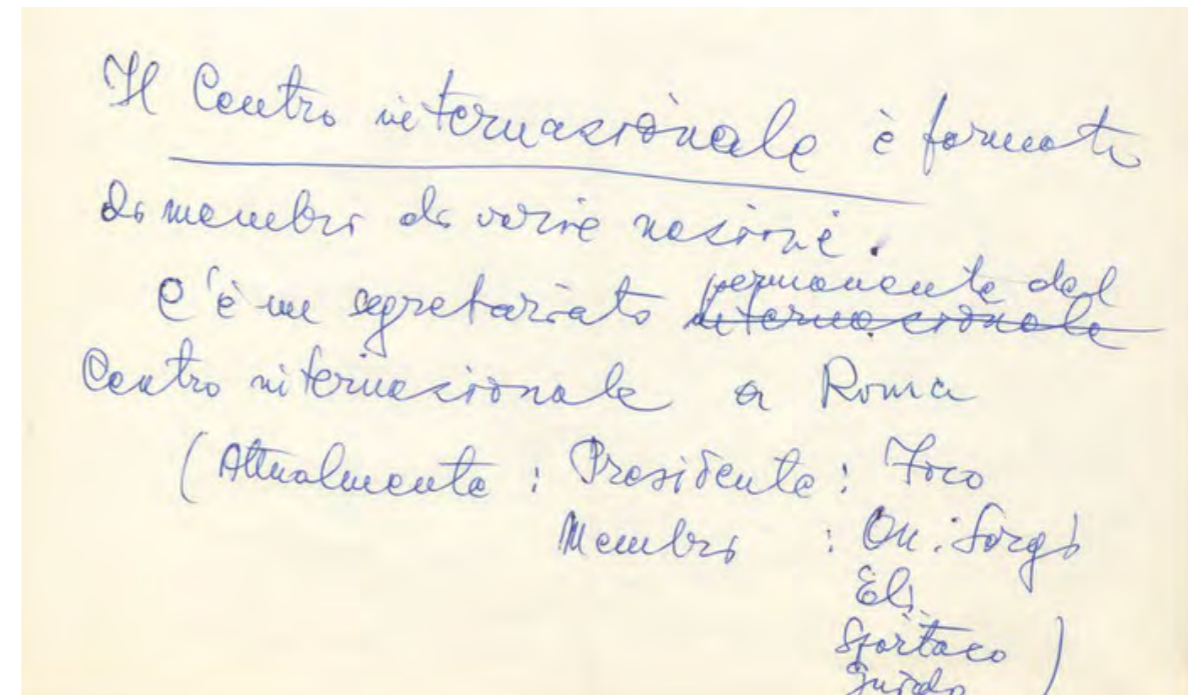 Il Centro internazionale è formato
da membri da varie nazioni.
C'è un segretariato permanente del
internazionale
Centro internazionale a Roma
(Attualmente : Presidente : Foco
Membri : On. Sorgi
Eli
Spartaco )
Guido